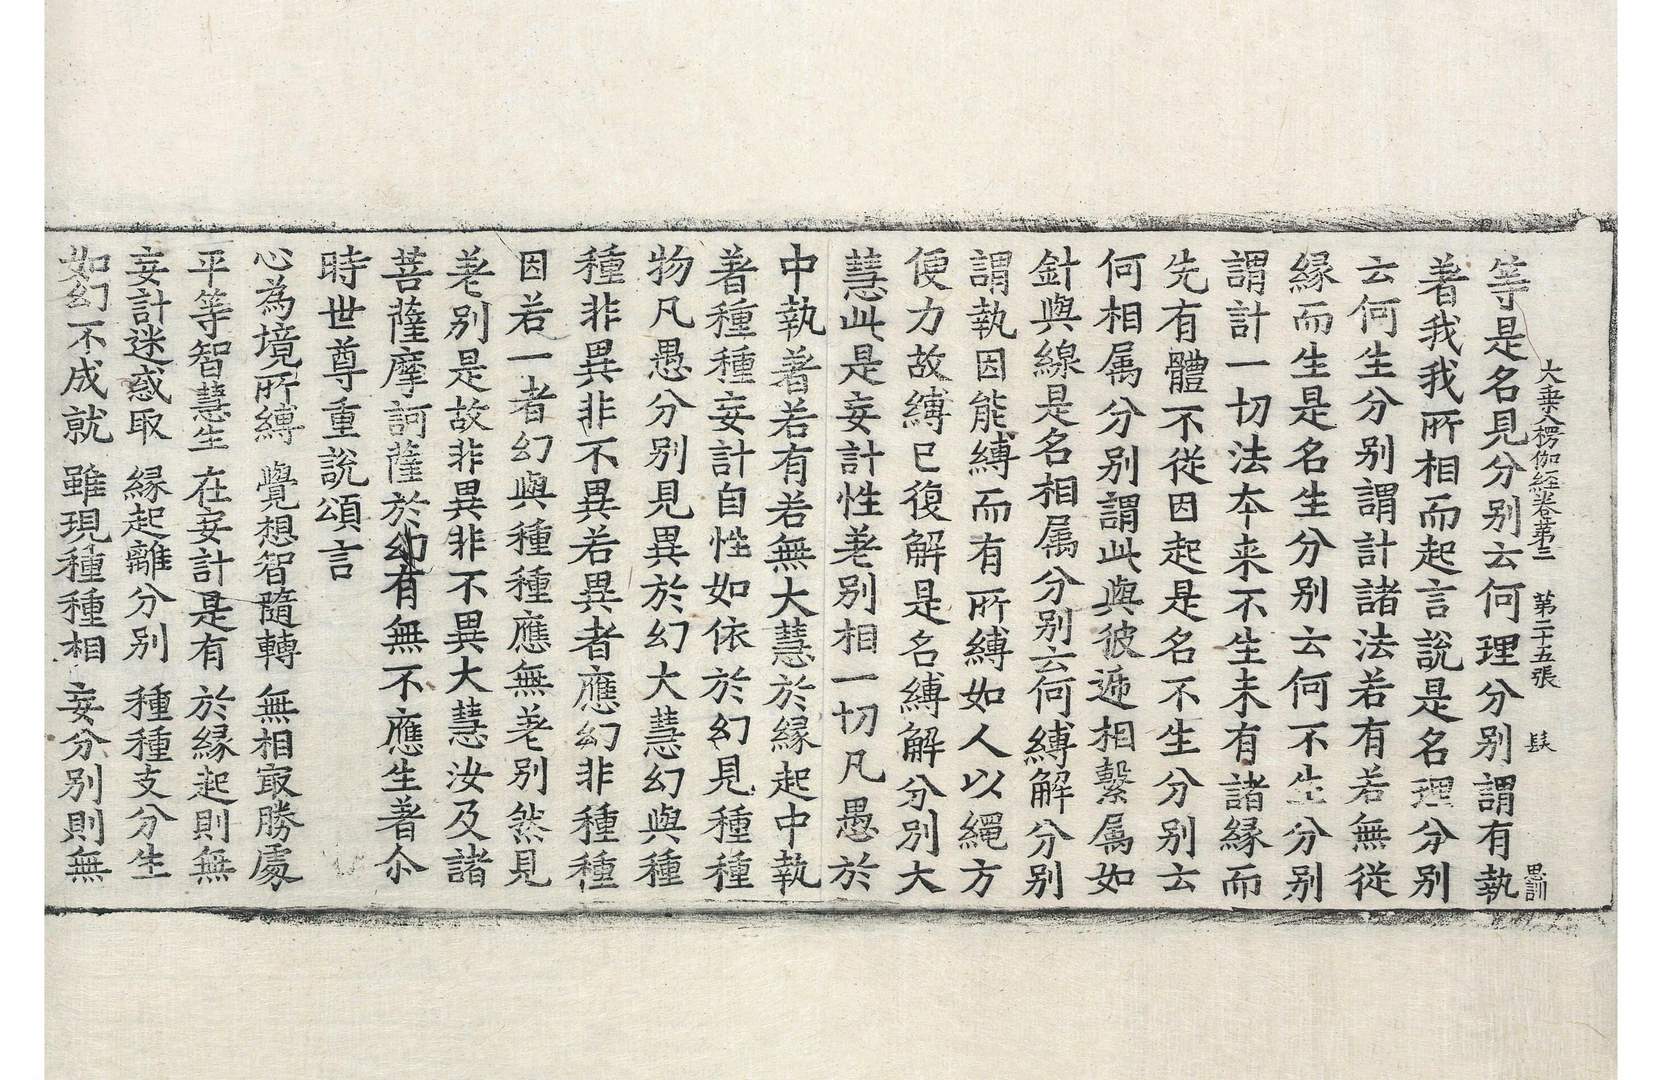 大乗入楞伽経卷第三 第二十五張 髮 思訓
等是名見分別云何理分別謂有執
著我我所相而起言說是名理分別
云何生分別謂計諸法若有若無從
緣而生是名生分別云何不生分別
謂計一切法本来不生未有諸緣而
先有體不從因起是名不生分別云
何相属分別謂此與彼遞相繫属如
針與線是名相属分別云何縛解分別
謂執因能縛而有所縛如人以繩方
便力故縛已復解是名縛解分別大
慧此是妄計性差別相一切凡愚於
中執著若有若無大慧於緣起中執
著種種妄計自性如依於幻見種種
物凡愚分別見異於幻大慧幻與種
種非異非不異若異者應幻非種種
因若一者幻與種種應無差別然見
差別是故非異非不異大慧汝及諸
菩薩摩訶薩於幻有無不應生著尒
時世尊重說頌言
心為境所縛 覺想智隨轉 無相㝡勝處
平等智慧生 在妄計是有 於緣起則無
妄計迷惑取 緣起離分別 種種支分生
如幻不成就 雖現種種相 妄分別則無